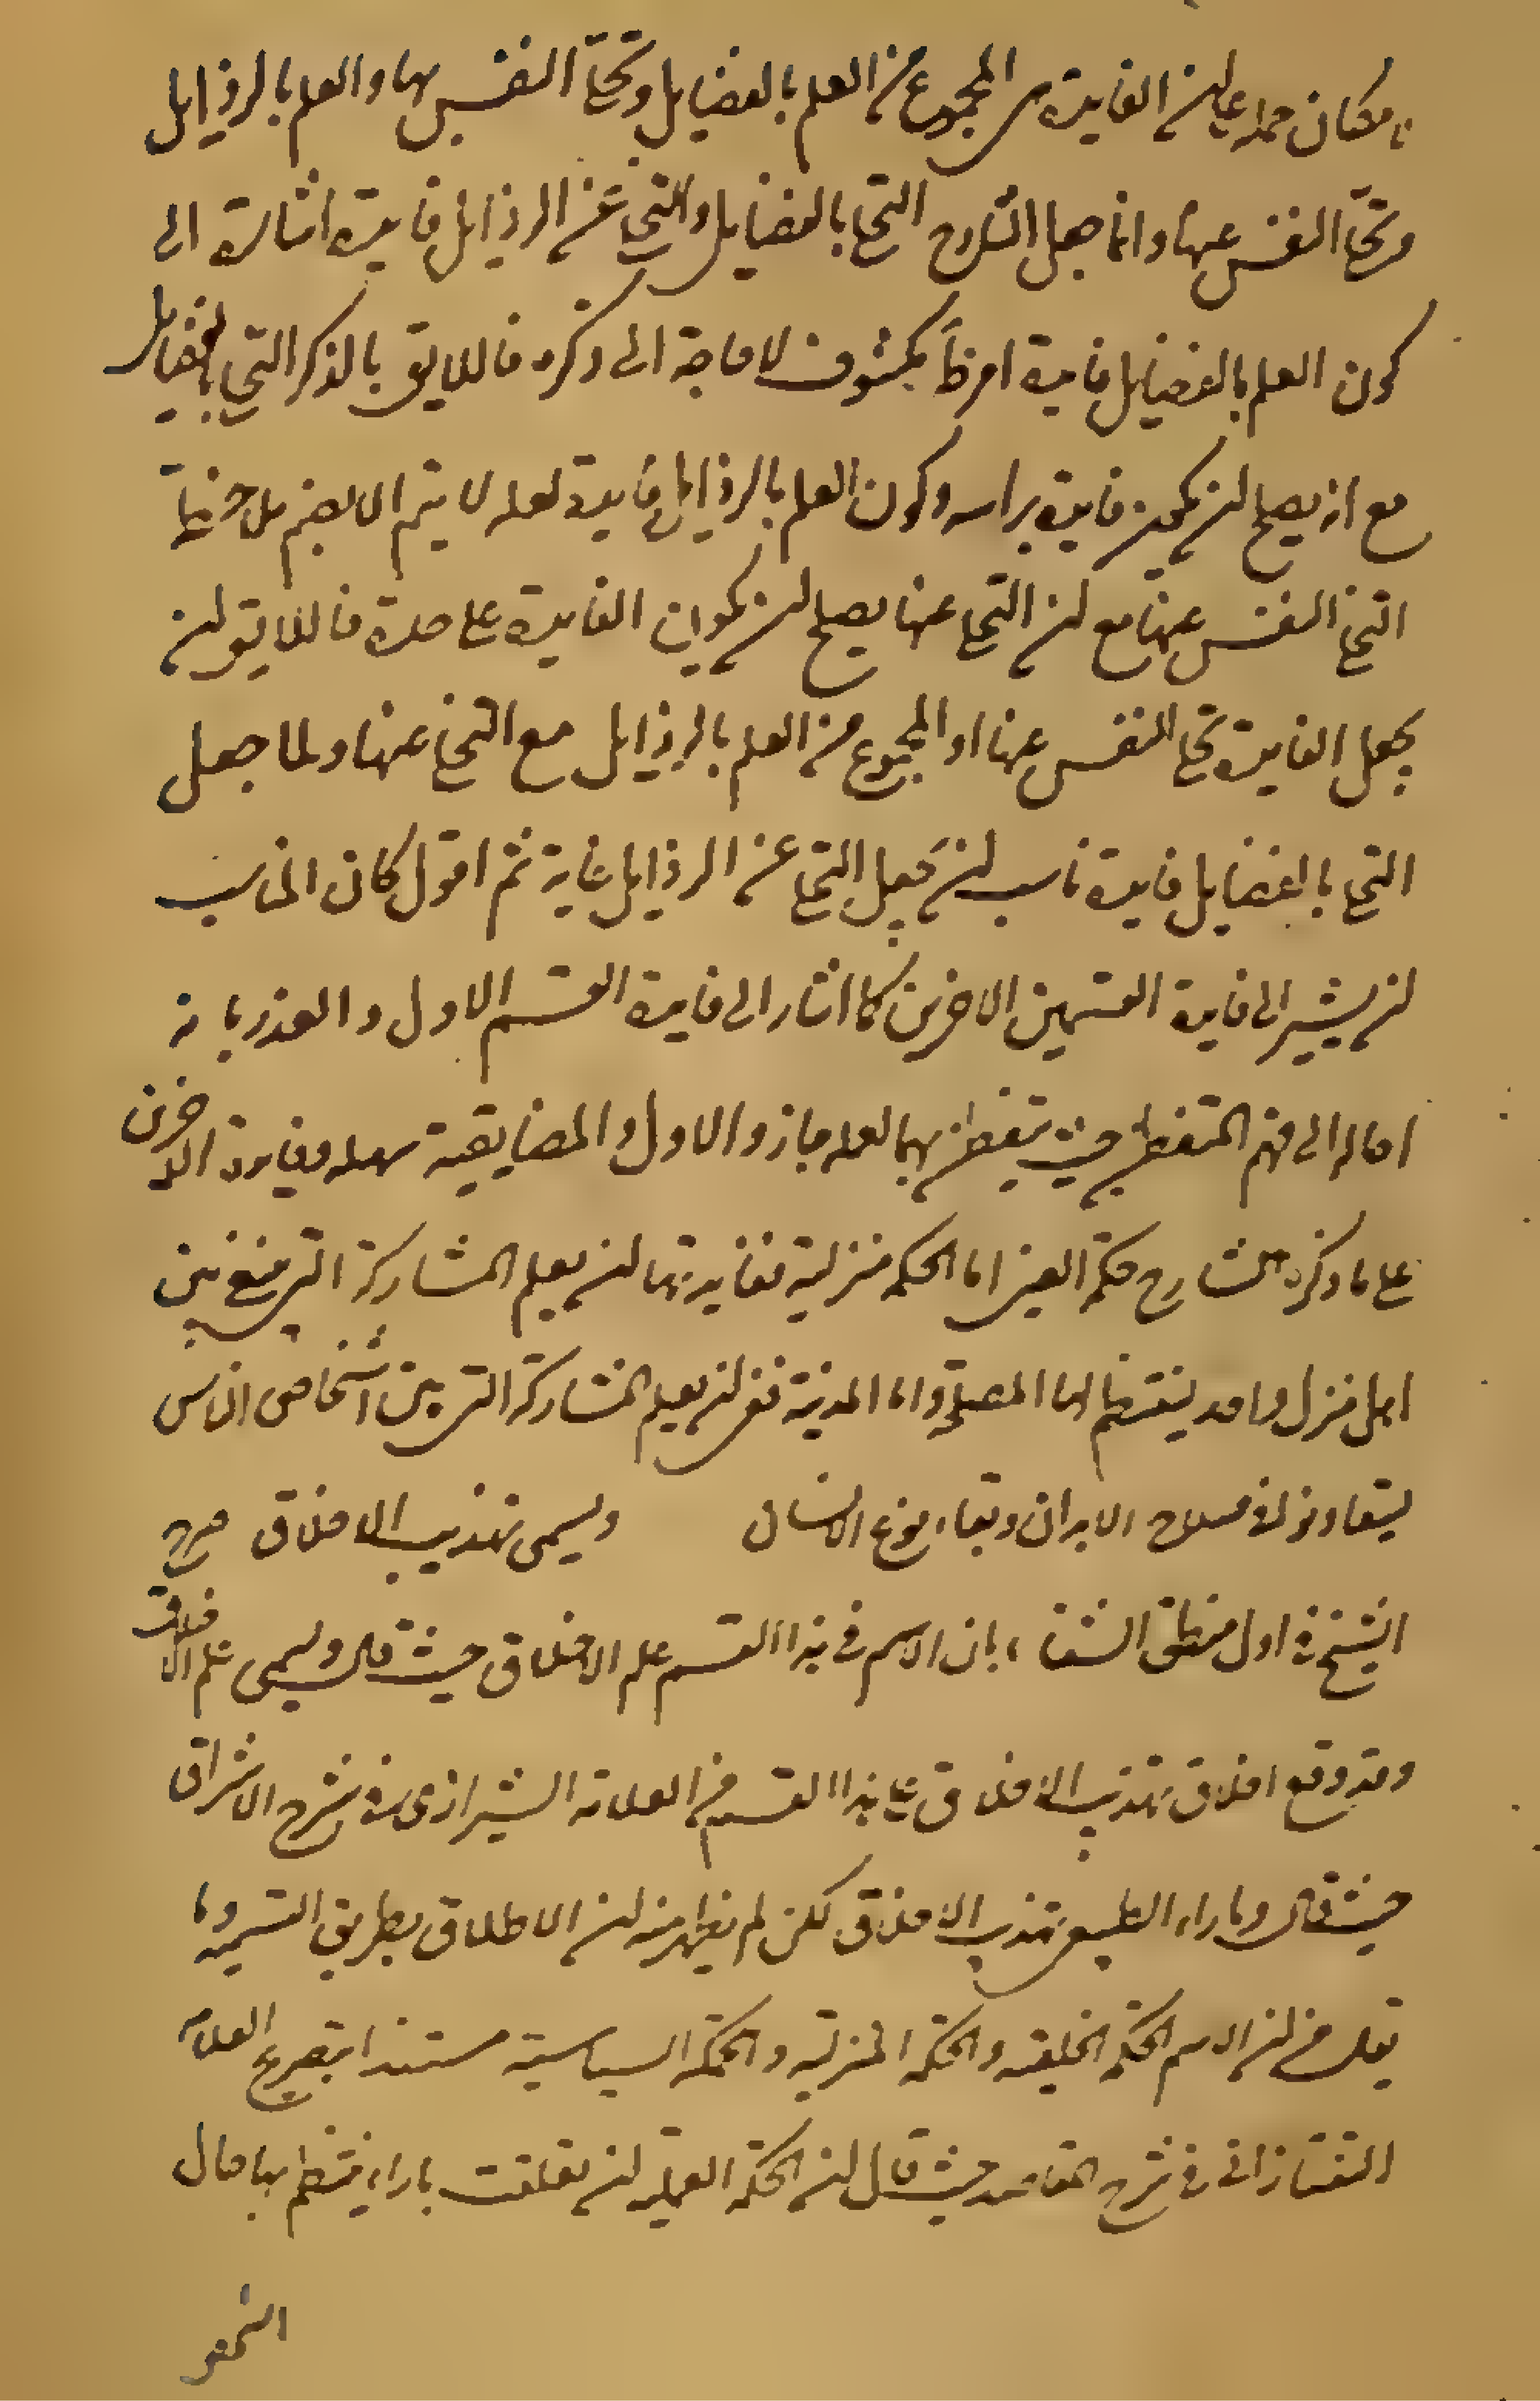 بامكان حمله على ان الفايدة هى المجموع من العلم بالفضايل وتحلى النفس بها والعلم بالرذايل
وتخلى النفس عنها وانما جعل الشارح التحلى بالفضايل والتخلى عن الرذايل فايدة اشارة الى
كون العلم بالفضايل فايدة امر مكشوف لا حاجة الى ذكره فاللايق بالذكر التحلى بالفضايل
مع انه يصلح لان يكون فايدة براسه وكون العلم بالرذايل فايدة لعله لا يتم الا بضم
التخلى النفس عنها مع ان التخلى عنها يصلح لان يكون الفايدة على حدة فاللايق ان
يجعل الفايدة تخلى النفس عنها او المجموع من العلم بالرذايل مع التخلى عنها ولما جعل
التحلى بالفضايل فايدة ناسب ان يجعل التخلى عن الرذايل غاية ثم اقول كان المناسب
ان يشير الى فايدة القسمين الاخرين كما اشار الى فايدة القسم الاول والعذر بانه
احاله الى فهم المتفطن حيث يتفطن بهما لعله جاز والاول والمضايقة سهله وفايدة الاخرين
على ما ذكره الشارح حكمة العين اما الحكمه منزلية ففايدتها ان يعلم المشاركة التى ينبغى بين
اهل منزل واحد لينتظم بها المصلحة واما المدنية فهى ان يعلم المشاركة التى بين اشخاص الناس
ليتعاونوا فى مصلاح الابدان وبقاء نوع الانسان ويسمى تهذيب الاخلاق صرح
الشيخ فى اول منطق الشفاء بان الاسم فى هذا القسم علم الاخلاق حيث قال ويسمى علم الاخلاق
وقد وقع اطلاق تهذيب الاخلاق على هذا القسم من العلامة الشيرازى فى شرح الاشراق
حيث قال وما راء الطبيعى تهذيب الاخلاق لكن لم يظهر منه ان الاطلاق بطريق التسمية وما
يقال من ان الاسم الحكمة الخلقية والحكمة المنزلية والحكمة السياسية مستندا بتصريح العلامه
التفتازانى فى شرح المقاصد حيث قال ان الحكمة العملية ان تعلقت باراء ينتظم بها حال